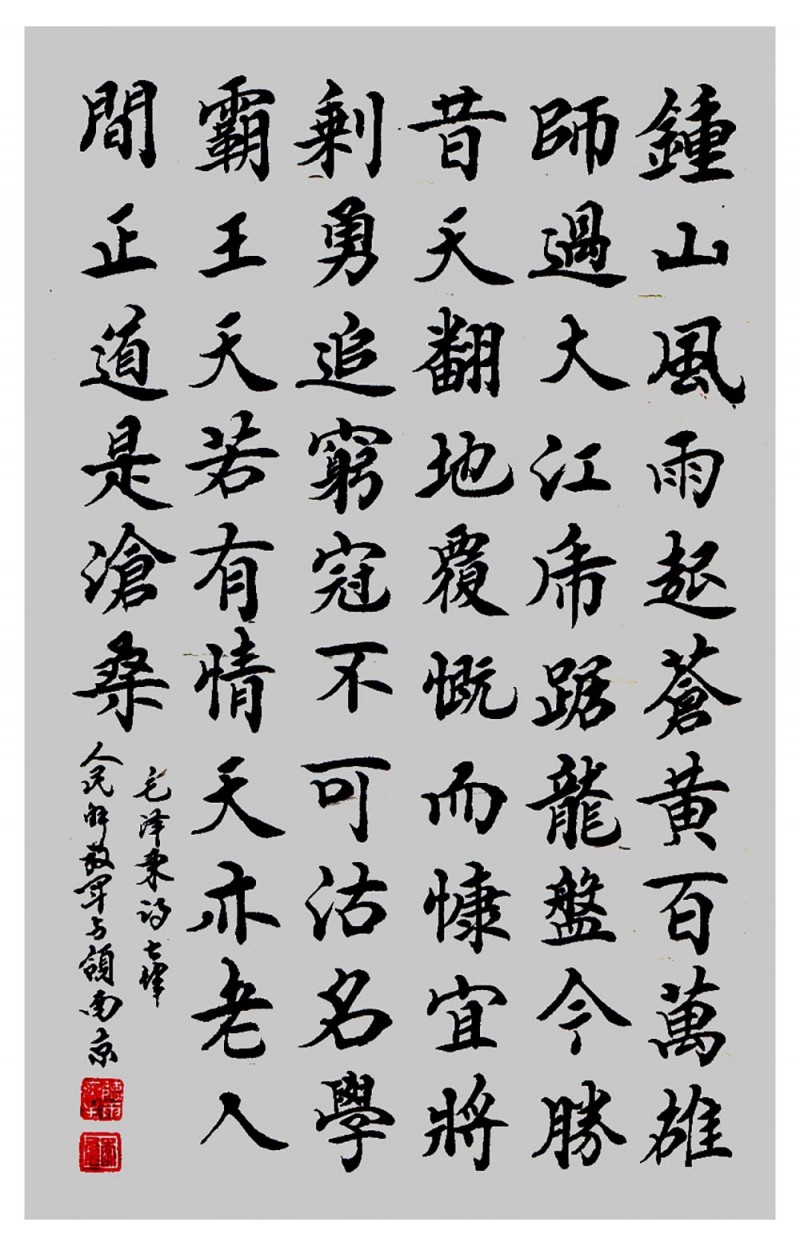 鍾山風雨起蒼黃百萬雄
師過大江虎踞龍盤今勝
昔天翻地覆慨而慷宜將
剩勇追窮寇不可沽名學
霸王天若有情天亦老人
間正道是滄桑
毛泽东诗七律
人民解放军占領南京